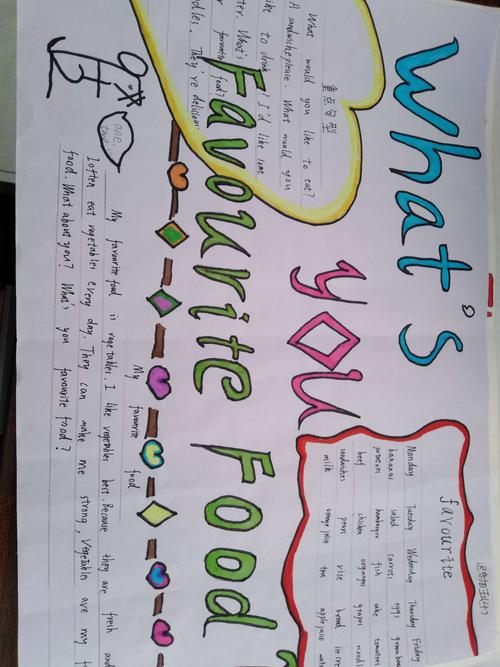 What's
you
Favourite Food
重点句型
What would you like to eat?
A sandwiche please. What would you
like to drink? I'd like some
What's favourite food?
They're delicious.
favourite
Monday Tuesday Wednesday Thursday Friday
bananas salad carrot eggs green
potatoes hamburger fish cake tomatoes
beef chicken organges grapes
sandwiches pears rice bread
milk orange juice tea apple juice
My favourite food
one
My favourite food is vegetables. I like vegetables best. Because they are fresh and
I often eat vegetables every day. They can make me strong, Vegetables are my
food. What about you? What's you favourite food?